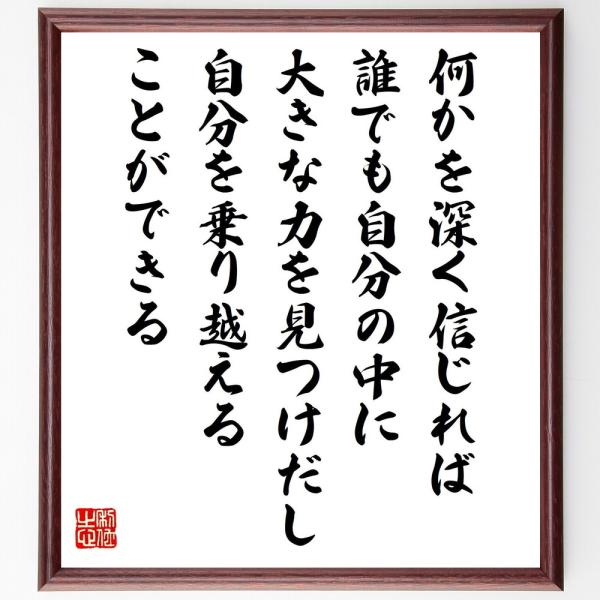 何かを深く信じれば
誰でも自分の中に
大きな力を見つけだし
自分を乗り越える
ことができる